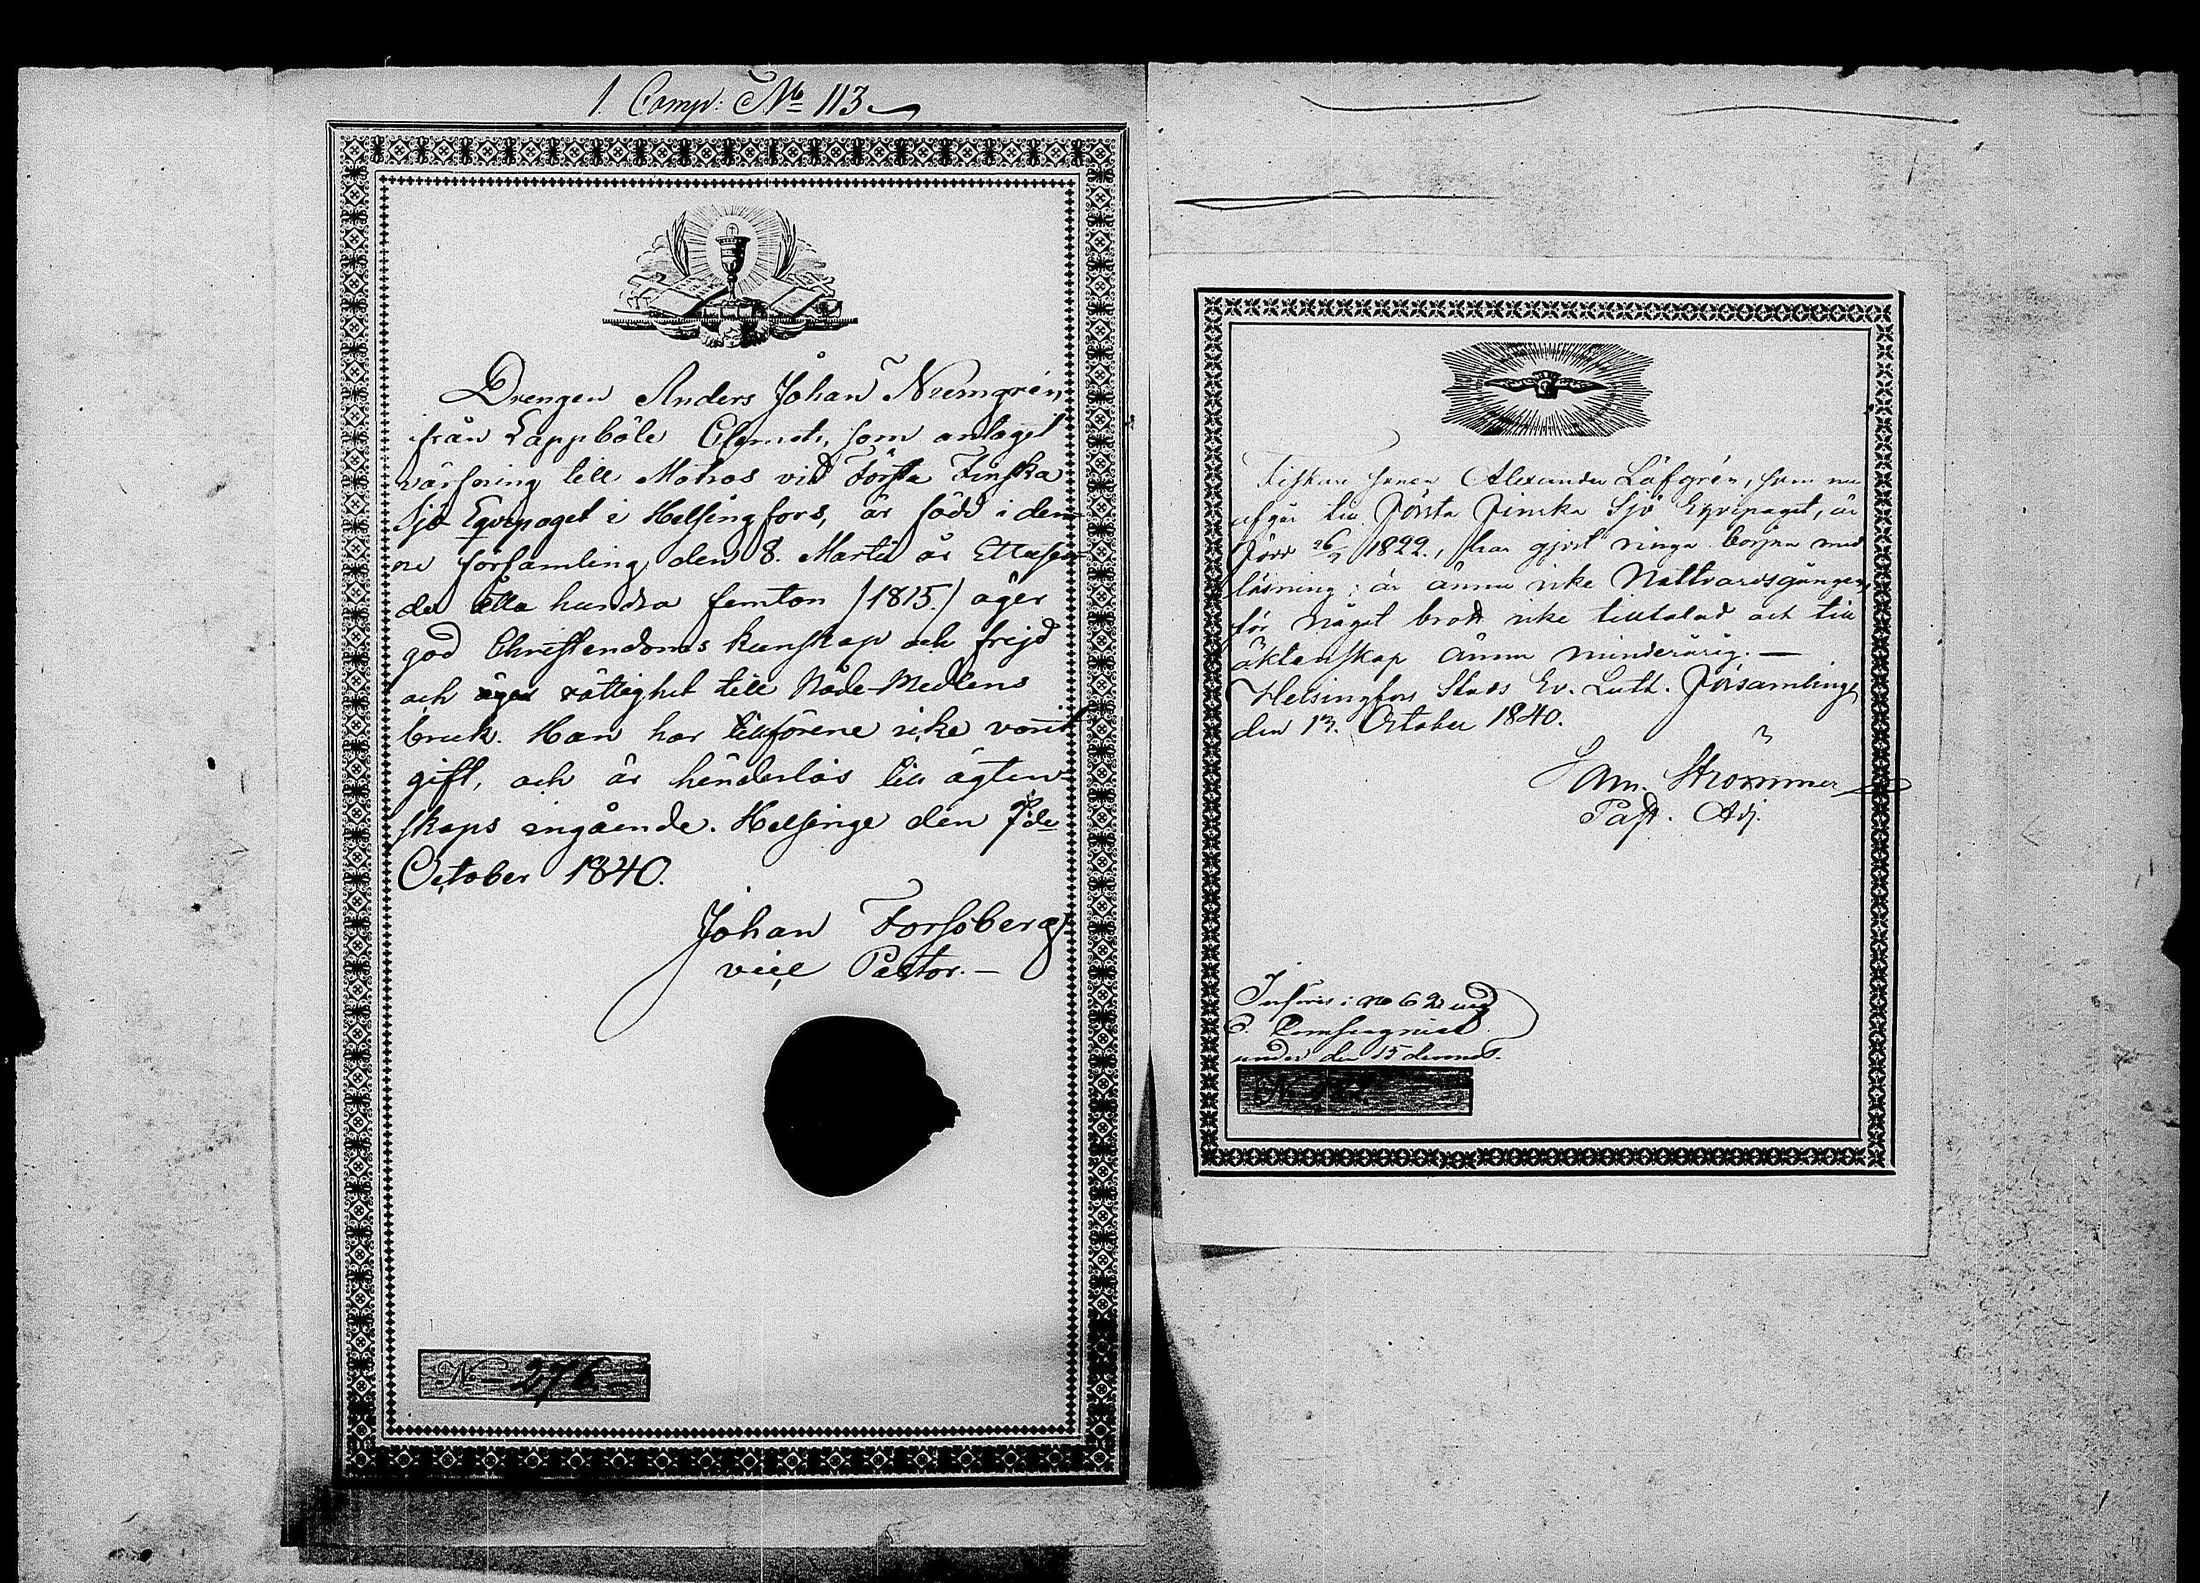 1. Comp: No 113
Drengen Anders Johan Numgrén,
från Lappböle Clemets, som antagit
värfning till Matros vid Första Finska
Sjö Eqvipaget i Helsingfors, är född i den-
na församling den 8. Martii år Ettusen-
de Åtta hundra femton /1815./ äger
god Christendoms kunskap och frejd
och äger rättighet till Nåde-Medlens
bruk. Han har tillförene icke varit
gift, och är hinderlös till ägten-
skaps ingående. Helsinge den 7de
October 1840.
Johan Forssberg
vice Pastor.
No 276.
Fiskare sonen Alexander Löfgrén, som nu
afgår till Första Finska Sjö Eqvipaget, är
född 26/9 1822, har gjort ringa början med
läsning; är ännu icke Nattvardsgången,
för något brott icke tilltalad och till
äktenskap ännu minderårig. —
Helsingfors Stads Ev. Luth. Församling
den 13. October 1840.
Strömmer
Past. Adj.
Införd i No 62 vid
Compagniet
under den 15 dennes.
No